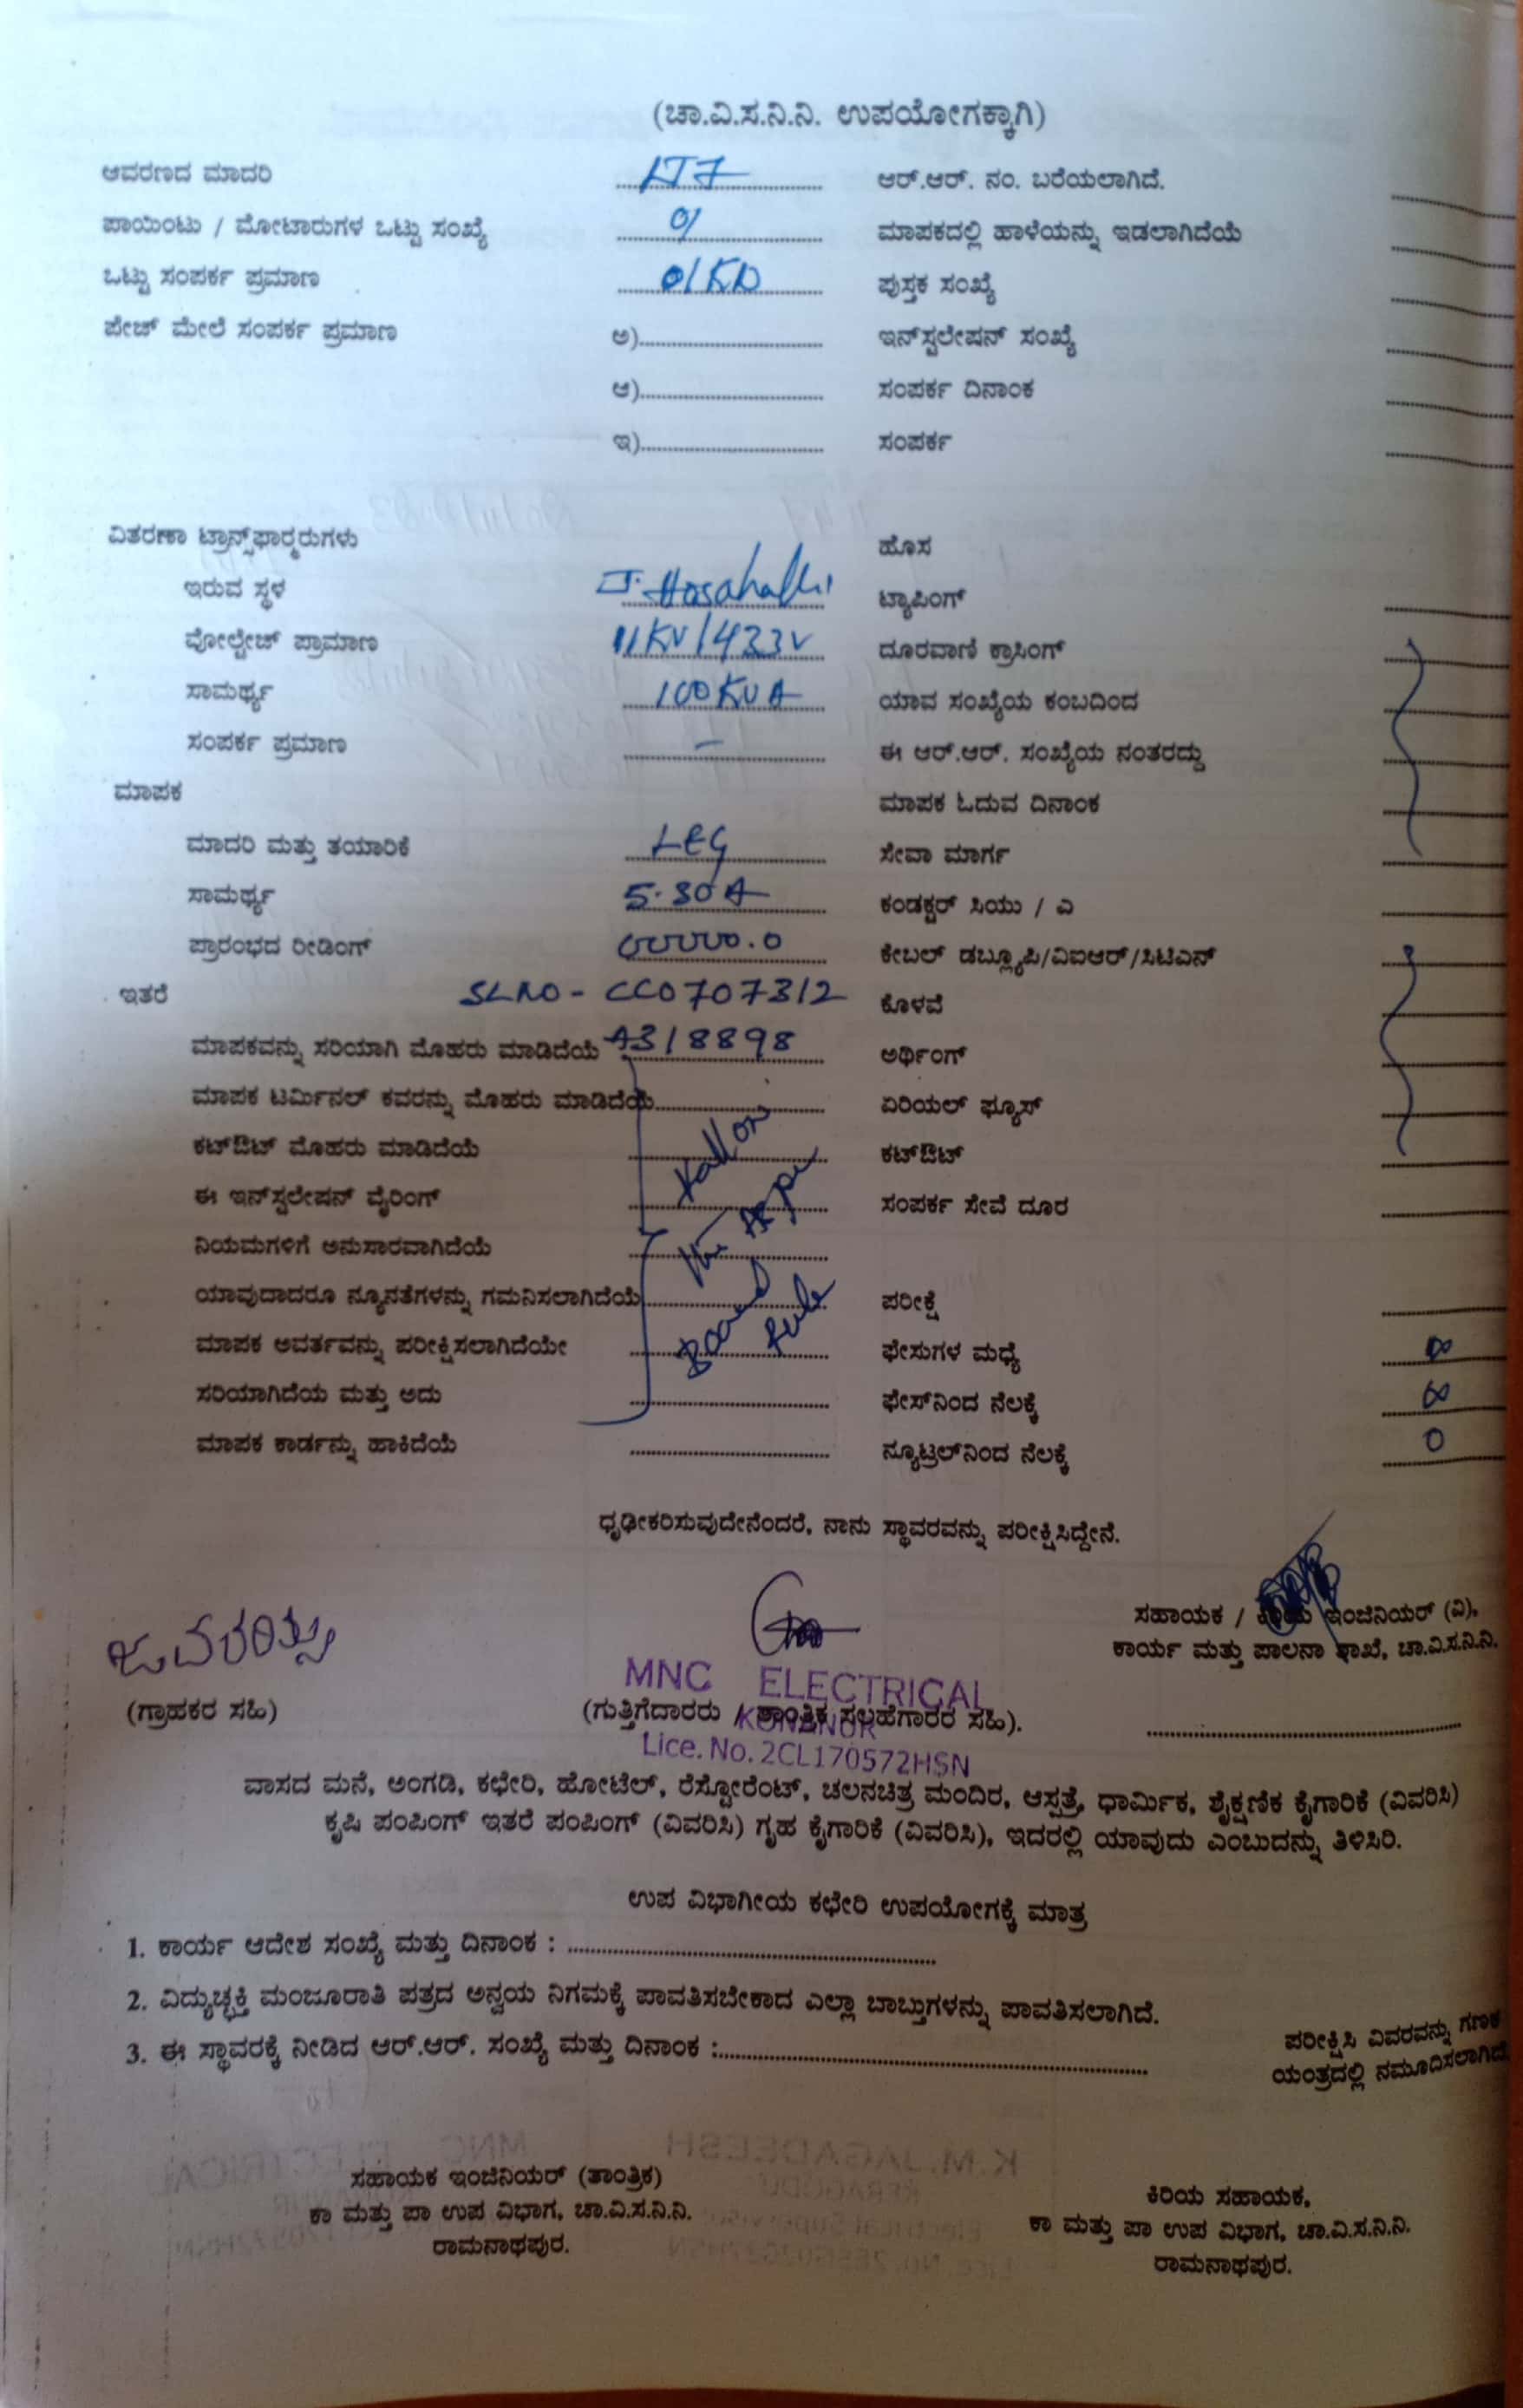 (ಚಾ.ವಿ.ಸ.ನಿ.ನಿ. ಉಪಯೋಗಕ್ಕಾಗಿ)
ಆವರಣದ ಮಾದರಿ LT7 ಆರ್.ಆರ್. ನಂ. ಬರೆಯಲಾಗಿದೆ.
ಪಾಯಿಂಟು / ಮೋಟಾರುಗಳ ಒಟ್ಟು ಸಂಖ್ಯೆ 01 ಮಾಪಕದಲ್ಲಿ ಹಾಳೆಯನ್ನು ಇಡಲಾಗಿದೆಯೆ
ಒಟ್ಟು ಸಂಪರ್ಕ ಪ್ರಮಾಣ 01KW ಪುಸ್ತಕ ಸಂಖ್ಯೆ
ಪೇಜ್ ಮೇಲೆ ಸಂಪರ್ಕ ಪ್ರಮಾಣ ಅ) ಇನ್‌ಸ್ಟಲೇಷನ್ ಸಂಖ್ಯೆ
ಆ) ಸಂಪರ್ಕ ದಿನಾಂಕ
ಇ) ಸಂಪರ್ಕ
ವಿತರಣಾ ಟ್ರಾನ್ಸ್‌ಫಾರ್‍ಮರುಗಳು ಹೊಸ
ಇರುವ ಸ್ಥಳ J. Hosahalli ಟ್ಯಾಪಿಂಗ್
ವೋಲ್ಟೇಜ್ ಪ್ರಾಮಾಣ 11KV/433V ದೂರವಾಣಿ ಕ್ರಾಸಿಂಗ್
ಸಾಮರ್ಥ್ಯ 100KVA ಯಾವ ಸಂಖ್ಯೆಯ ಕಂಬದಿಂದ
ಸಂಪರ್ಕ ಪ್ರಮಾಣ – ಈ ಆರ್.ಆರ್. ಸಂಖ್ಯೆಯ ನಂತರದ್ದು
ಮಾಪಕ ಮಾಪಕ ಓದುವ ದಿನಾಂಕ
ಮಾದರಿ ಮತ್ತು ತಯಾರಿಕೆ L&G ಸೇವಾ ಮಾರ್ಗ
ಸಾಮರ್ಥ್ಯ 5-30A ಕಂಡಕ್ಟರ್ ಸಿಯು / ಎ
ಪ್ರಾರಂಭದ ರೀಡಿಂಗ್ 00000.0 ಕೇಬಲ್ ಡಬ್ಲ್ಯೂಪಿ/ವಿಐಆರ್/ಸಿಟಿಎನ್
ಇತರೆ SLNO - CC0707312 ಕೊಳವೆ
ಮಾಪಕವನ್ನು ಸರಿಯಾಗಿ ಮೊಹರು ಮಾಡಿದೆಯೆ A318898 ಅರ್ಥಿಂಗ್
ಮಾಪಕ ಟರ್ಮಿನಲ್ ಕವರನ್ನು ಮೊಹರು ಮಾಡಿದೆಯೆ ಏರಿಯಲ್ ಫ್ಯೂಸ್
ಕಟ್‌ಔಟ್ ಮೊಹರು ಮಾಡಿದೆಯೆ ಕಟ್‌ಔಟ್
ಈ ಇನ್‌ಸ್ಟಲೇಷನ್ ವೈರಿಂಗ್ ಸಂಪರ್ಕ ಸೇವೆ ದೂರ
ನಿಯಮಗಳಿಗೆ ಅನುಸಾರವಾಗಿದೆಯೆ
ಯಾವುದಾದರೂ ನ್ಯೂನತೆಗಳನ್ನು ಗಮನಿಸಲಾಗಿದೆಯೆ ಪರೀಕ್ಷೆ
ಮಾಪಕ ಅವರ್ತವನ್ನು ಪರೀಕ್ಷಿಸಲಾಗಿದೆಯೇ ಫೇಸುಗಳ ಮಧ್ಯೆ ∞
ಸರಿಯಾಗಿದೆಯ ಮತ್ತು ಅದು ಫೇಸ್‌ನಿಂದ ನೆಲಕ್ಕೆ ∞
ಮಾಪಕ ಕಾರ್ಡನ್ನು ಹಾಕಿದೆಯೆ ನ್ಯೂಟ್ರಲ್‌ನಿಂದ ನೆಲಕ್ಕೆ 0
ಧೃಢೀಕರಿಸುವುದೇನೆಂದರೆ, ನಾನು ಸ್ಥಾವರವನ್ನು ಪರೀಕ್ಷಿಸಿದ್ದೇನೆ.
ಸಹಾಯಕ / ಕಿರಿಯ ಇಂಜಿನಿಯರ್ (ವಿ),
ಕಾರ್ಯ ಮತ್ತು ಪಾಲನಾ ಶಾಖೆ, ಚಾ.ವಿ.ಸ.ನಿ.ನಿ.
MNC ELECTRICAL
(ಗ್ರಾಹಕರ ಸಹಿ) (ಗುತ್ತಿಗೆದಾರರು / ತಾಂತ್ರಿಕ ಸಲಹೆಗಾರರ ಸಹಿ).
KONANUR
Lice. No. 2CL170572HSN
ವಾಸದ ಮನೆ, ಅಂಗಡಿ, ಕಛೇರಿ, ಹೋಟೆಲ್, ರೆಸ್ಟೋರೆಂಟ್, ಚಲನಚಿತ್ರ ಮಂದಿರ, ಆಸ್ಪತ್ರೆ, ಧಾರ್ಮಿಕ, ಶೈಕ್ಷಣಿಕ ಕೈಗಾರಿಕೆ (ವಿವರಿಸಿ)
ಕೃಷಿ ಪಂಪಿಂಗ್ ಇತರೆ ಪಂಪಿಂಗ್ (ವಿವರಿಸಿ) ಗೃಹ ಕೈಗಾರಿಕೆ (ವಿವರಿಸಿ), ಇದರಲ್ಲಿ ಯಾವುದು ಎಂಬುದನ್ನು ತಿಳಿಸಿರಿ.
ಉಪ ವಿಭಾಗೀಯ ಕಛೇರಿ ಉಪಯೋಗಕ್ಕೆ ಮಾತ್ರ
1. ಕಾರ್ಯ ಆದೇಶ ಸಂಖ್ಯೆ ಮತ್ತು ದಿನಾಂಕ :
2. ವಿದ್ಯುಚ್ಛಕ್ತಿ ಮಂಜೂರಾತಿ ಪತ್ರದ ಅನ್ವಯ ನಿಗಮಕ್ಕೆ ಪಾವತಿಸಬೇಕಾದ ಎಲ್ಲಾ ಬಾಬ್ತುಗಳನ್ನು ಪಾವತಿಸಲಾಗಿದೆ.
3. ಈ ಸ್ಥಾವರಕ್ಕೆ ನೀಡಿದ ಆರ್.ಆರ್. ಸಂಖ್ಯೆ ಮತ್ತು ದಿನಾಂಕ :
ಪರೀಕ್ಷಿಸಿ ವಿವರವನ್ನು ಗಣಕ
ಯಂತ್ರದಲ್ಲಿ ನಮೂದಿಸಲಾಗಿದೆ
ಸಹಾಯಕ ಇಂಜಿನಿಯರ್ (ತಾಂತ್ರಿಕ)
ಕಾ ಮತ್ತು ಪಾ ಉಪ ವಿಭಾಗ, ಚಾ.ವಿ.ಸ.ನಿ.ನಿ.
ರಾಮನಾಥಪುರ.
ಕಿರಿಯ ಸಹಾಯಕ,
ಕಾ ಮತ್ತು ಪಾ ಉಪ ವಿಭಾಗ, ಚಾ.ವಿ.ಸ.ನಿ.ನಿ.
ರಾಮನಾಥಪುರ.